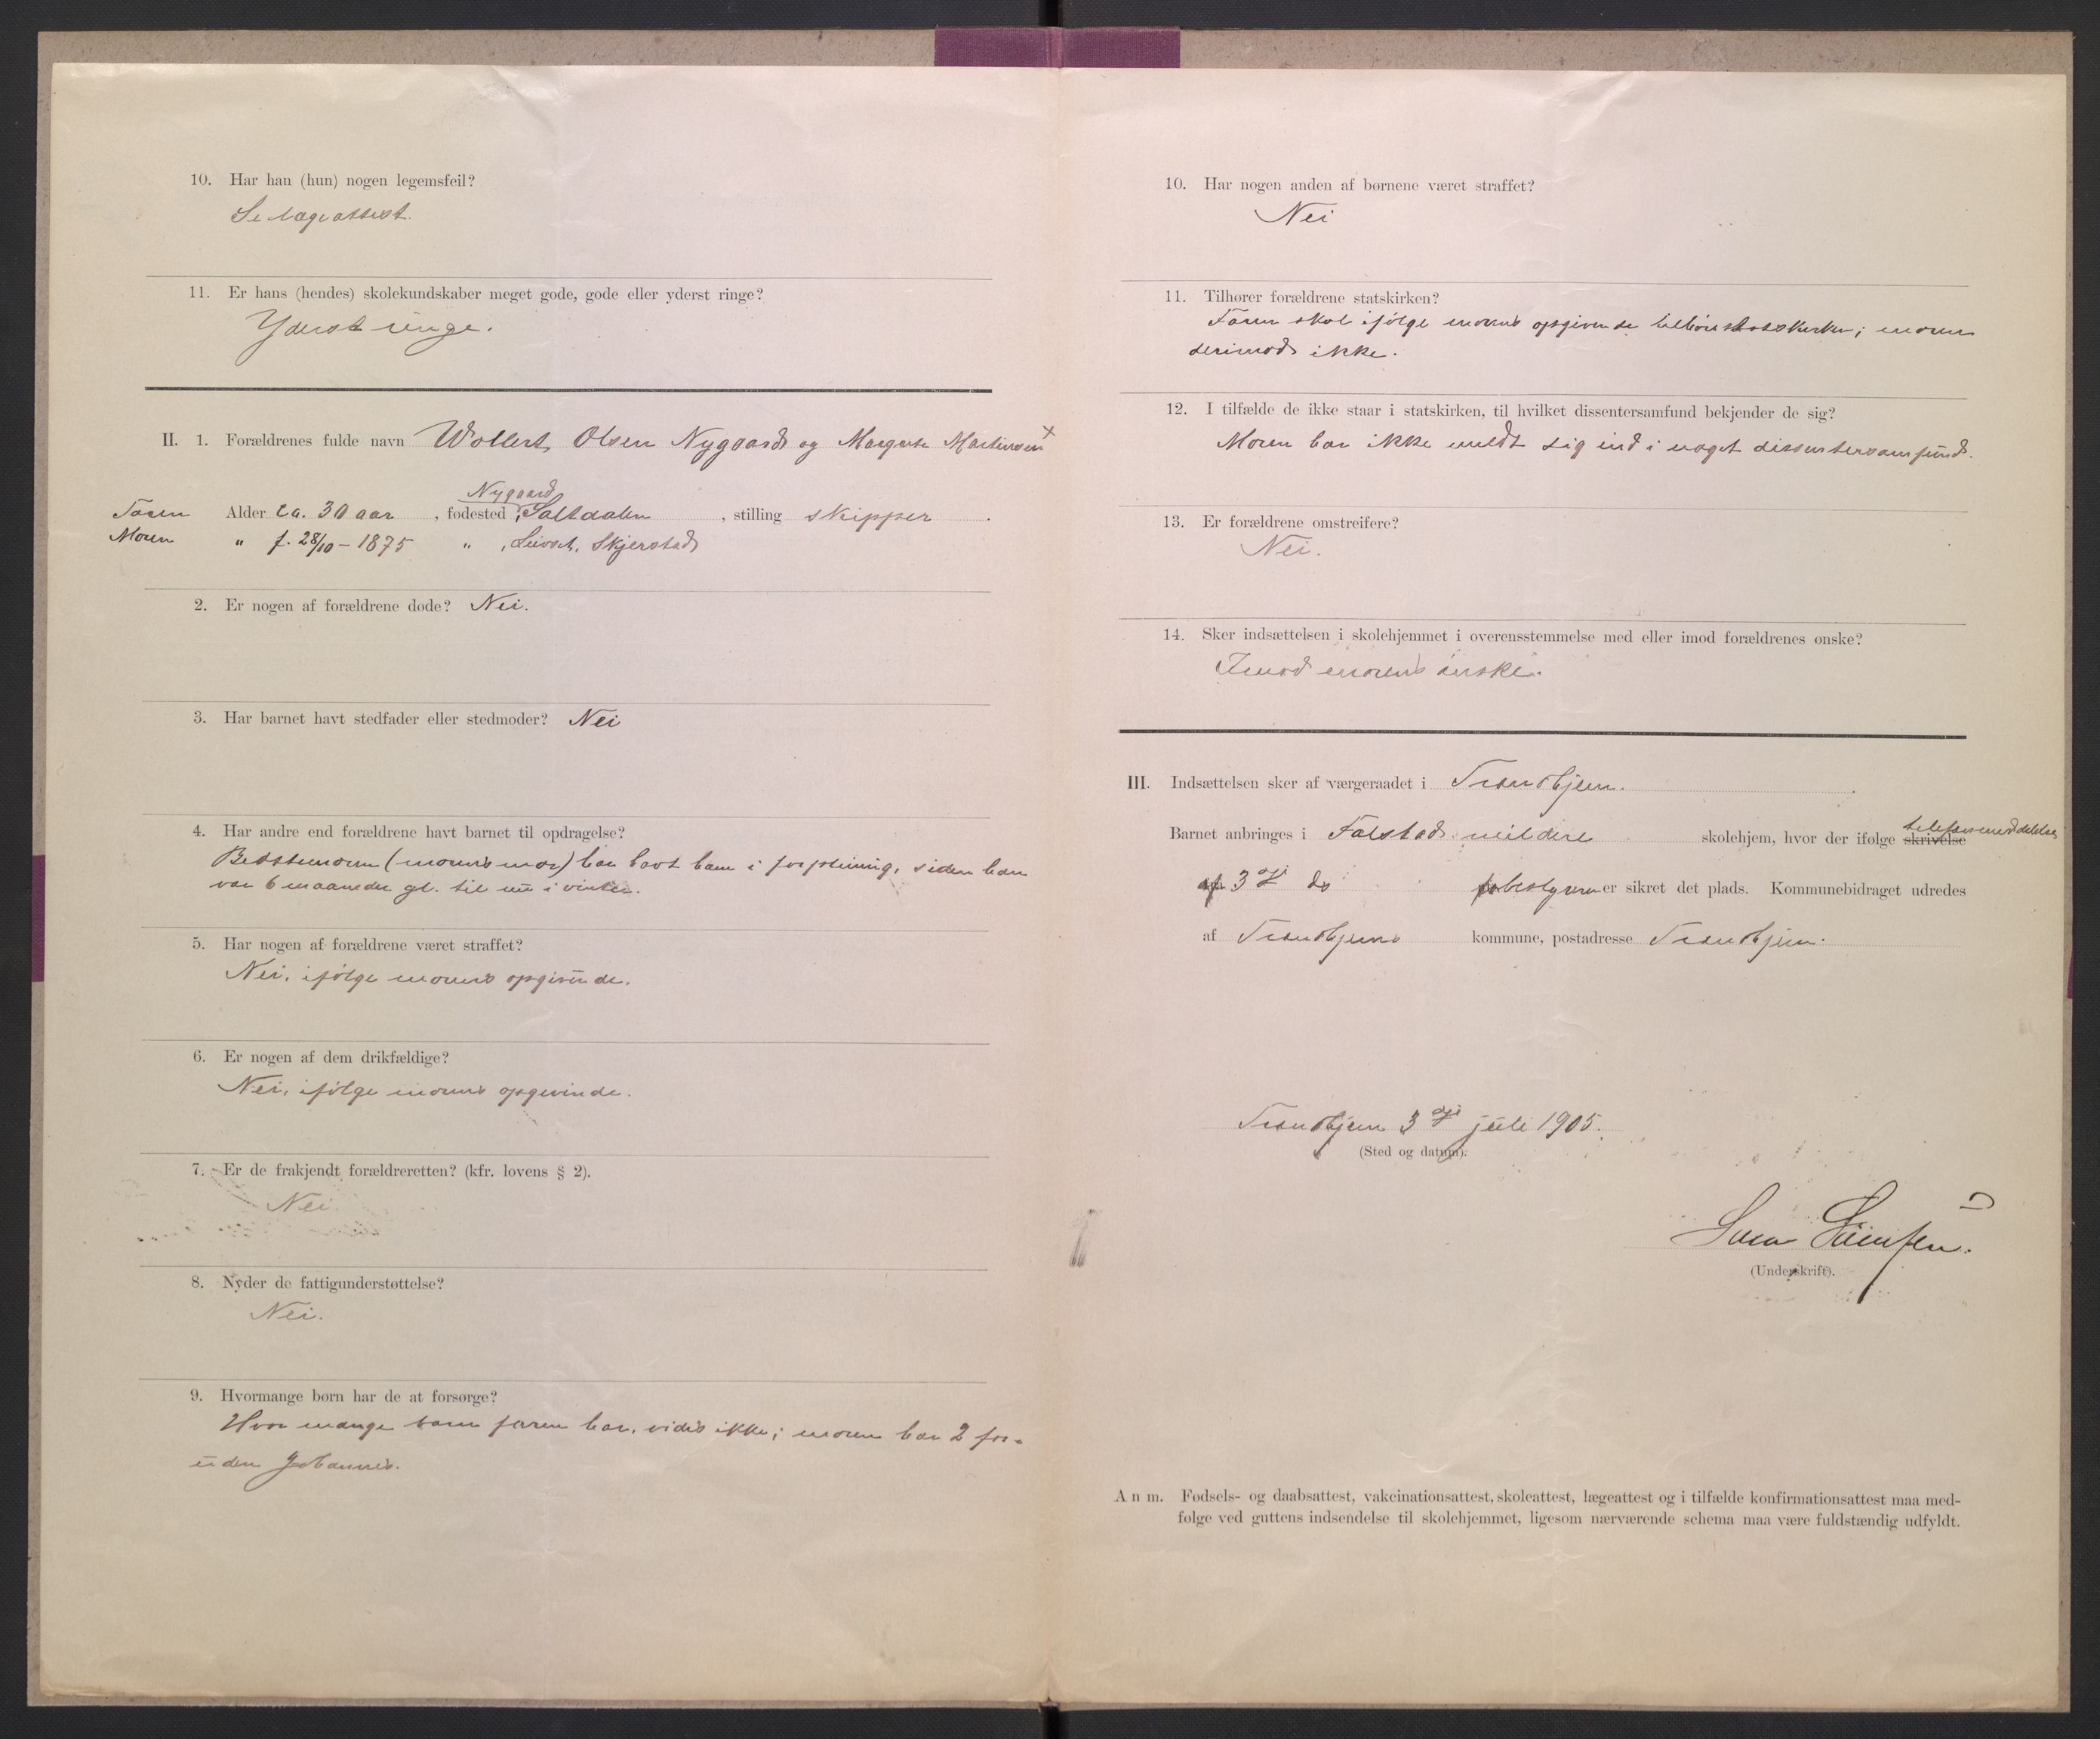 10. Har han (hun) nogen legemsfeil?
Se lægeattest.
11. Er hans (hendes) skolekundskaber meget gode, gode eller yderst ringe?
Yderst ringe.
II. 1. Forældrenes fulde navn Wollert Olsen Nygaard og Margrete Martinsen x
Nygaard
Faren Alder ca. 30 aar, fødested, Saltdalen, stilling skipper.
Moren " f. 28/10 - 1875 " , Leivset, Skjerstad
2. Er nogen af forældrene døde? Nei.
3. Har barnet havt stedfader eller stedmoder? Nei
4. Har andre end forældrene havt barnet til opdragelse?
Bedstemoren (morens mor) har havt ham i forpleining, siden han
var 6 maaneder gl. til nu i vinter.
5. Har nogen af forældrene været straffet?
Nei, ifølge morens opgivende.
6. Er nogen af dem drikfældige?
Nei, ifølge morens opgivende.
7. Er de frakjendt forældreretten? (kfr. lovens § 2).
Nei
8. Nyder de fattigunderstøttelse?
Nei.
9. Hvormange børn har de at forsørge?
Hvor mange barn faren har, vides ikke; moren har 2 for-
uden Johannes.
10. Har nogen anden af børnene været straffet?
Nei
11. Tilhører forældrene statskirken?
Faren skal ifølge morens opgivende tilhøre statskirken; moren
derimod ikke.
12. I tilfælde de ikke staar i statskirken, til hvilket dissentersamfund bekjender de sig?
Moren har ikke meldt sig ind i noget dissentersamfund.
13. Er forældrene omstreifere?
Nei.
14. Sker indsættelsen i skolehjemmet i overensstemmelse med eller imod forældrenes ønske?
Imod morens ønske.
III. Indsættelsen sker af værgeraadet i Trondhjem.
telefonmeddelelse
Barnet anbringes i Falstad mildere skolehjem, hvor der ifølge skrivelse
af 3 ds bestyreren er sikret det plads. Kommunebidraget udredes
af Trondhjems kommune, postadresse Trondhjem.
Trondhjem 3dje juli 1905.
(Sted og datum).
(Underskrift).
Anm. Fødsels- og daabsattest, vakcinationsattest, skoleattest, lægeattest og i tilfælde konfirmationsattest maa med-
følge ved guttens indsendelse til skolehjemmet, ligesom nærværende schema maa være fuldstændig udfyldt.